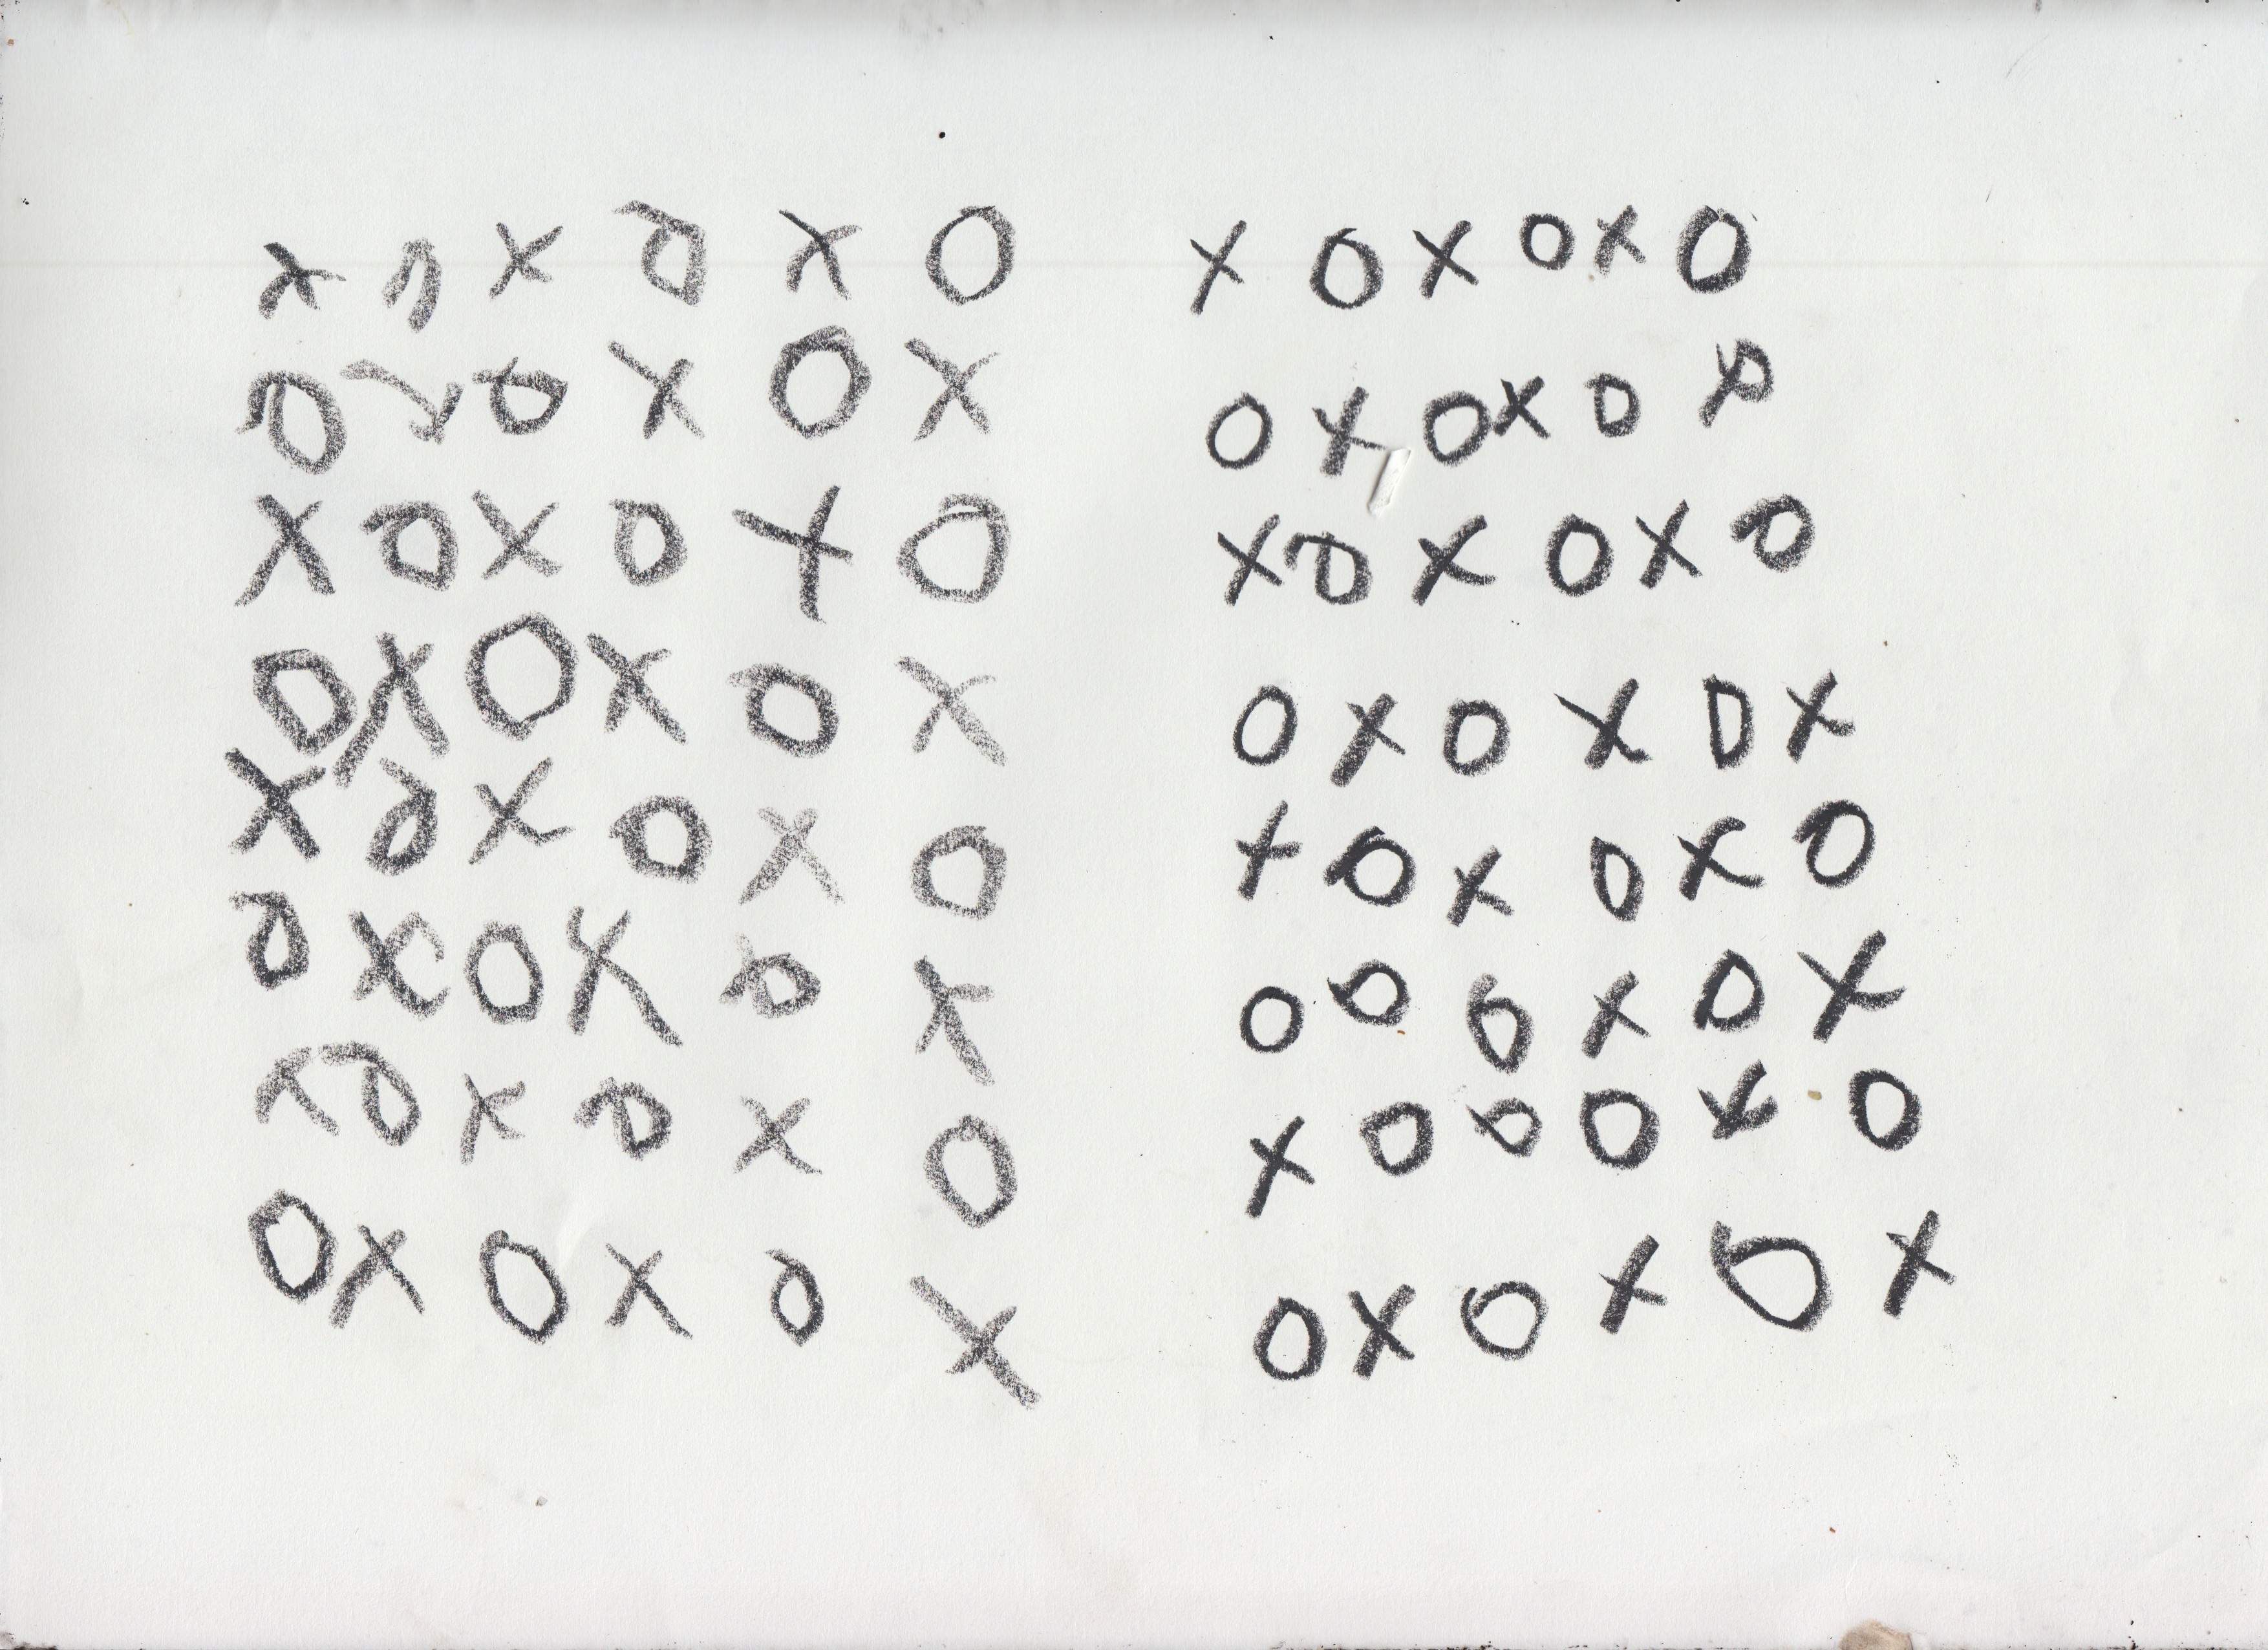 X O X O X O
O X O X O X
X O X O X O
O X O X O X
X O X O X O
O X O X O X
X O X O X O
O X O X O X
X O X O X O
O X O X O
X O X O X O
O X O X O X
X O X O X O
O O O X O X
X O O O X O
O X O X O X